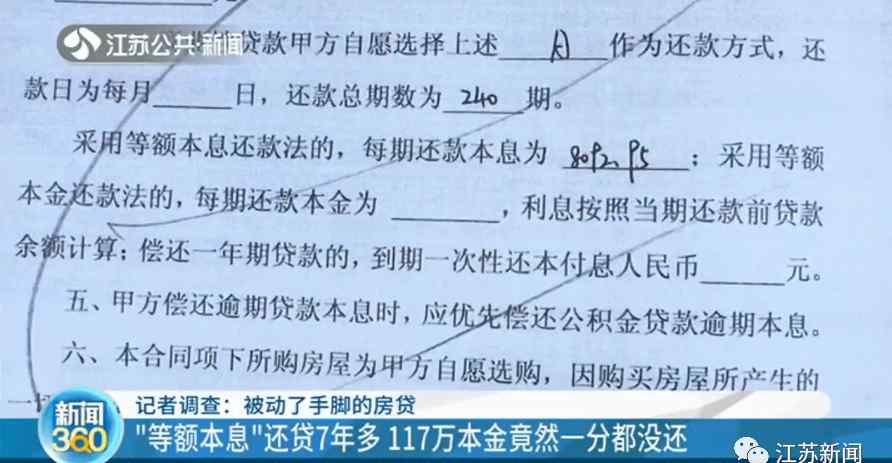 江苏公共·新闻
贷款甲方自愿选择上述 A 作为还款方式，还
款日为每月______日，还款总期数为 240 期。
采用等额本息还款法的，每期还款本息为 8092.95 ；采用等额
本金还款法的，每期还款本金为 ______，利息按照当期还款前贷款
余额计算；偿还一年期贷款的，到期一次性还本付息人民币______元。
五、甲方偿还逾期贷款本息时，应优先偿还公积金贷款逾期本息。
六、本合同项下所购房屋为甲方自愿选购，因购买房屋所产生的
一切
新闻
360
记者调查：被动了手脚的房贷
"等额本息"还贷7年多 117万本金竟然一分都没还
江苏新闻